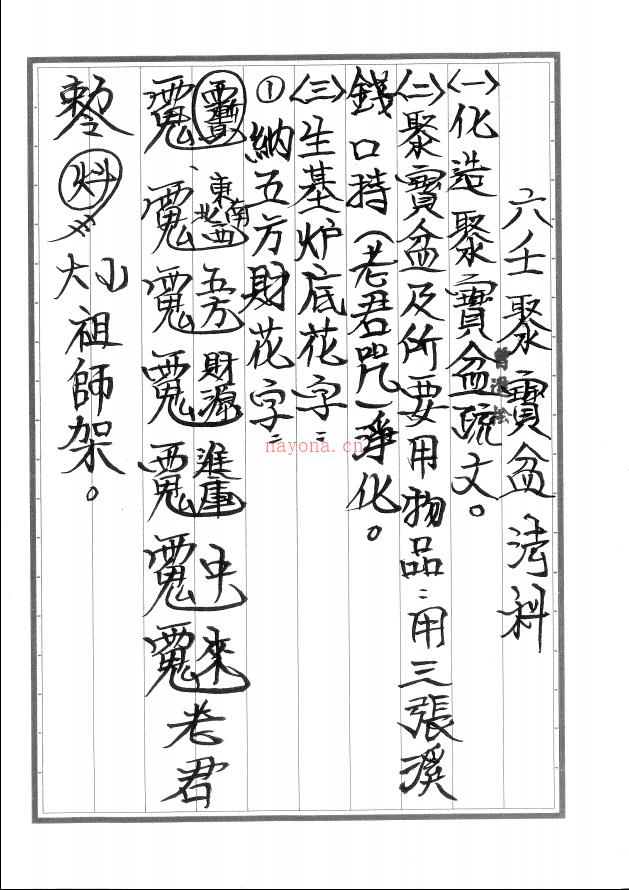 六壬聚寶盆法科
〈一〉化造聚寶盆疏文。
〈二〉聚寶盆及所要用物品：用三張溪
錢口持（老君咒）淨化。
〈三〉生基炉底花字：
①納五方財花字：
東南西北五方財源進庫中來老君
敕
祖師架。
nayona.cn